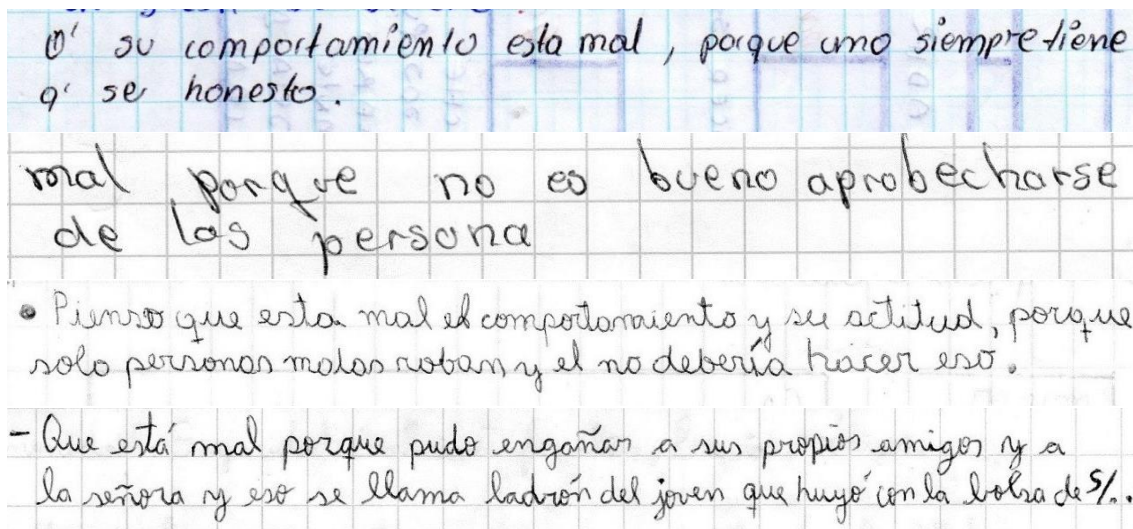 O' su comportamiento esta mal, porque uno siempre tiene
q' se honesto.
mal porque no es bueno aprobecharse
de las persona
• Pienso que esta mal el comportamiento y su actitud, porque
solo personas malas roban y el no debería hacer eso.
- Que está mal porque pudo engañar a sus propios amigos y a
la señora y eso se llama ladrón del joven que huyó con la bolsa de S/..